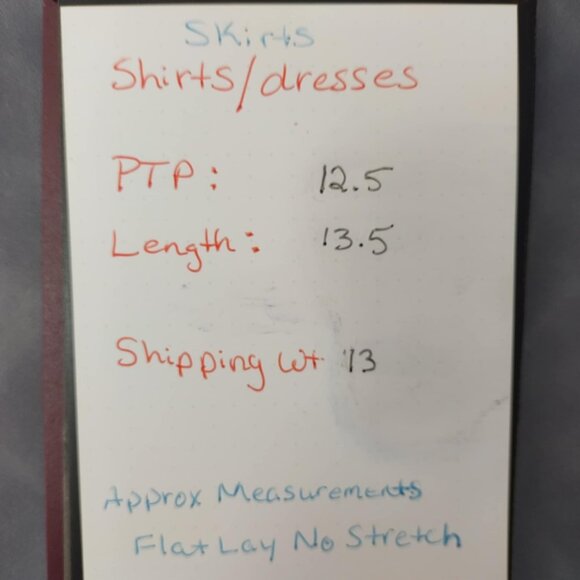 Skirts
Shirts/dresses
PTP: 12.5
Length: 13.5
Shipping Wt 13
Approx Measurements
Flat Lay No Stretch